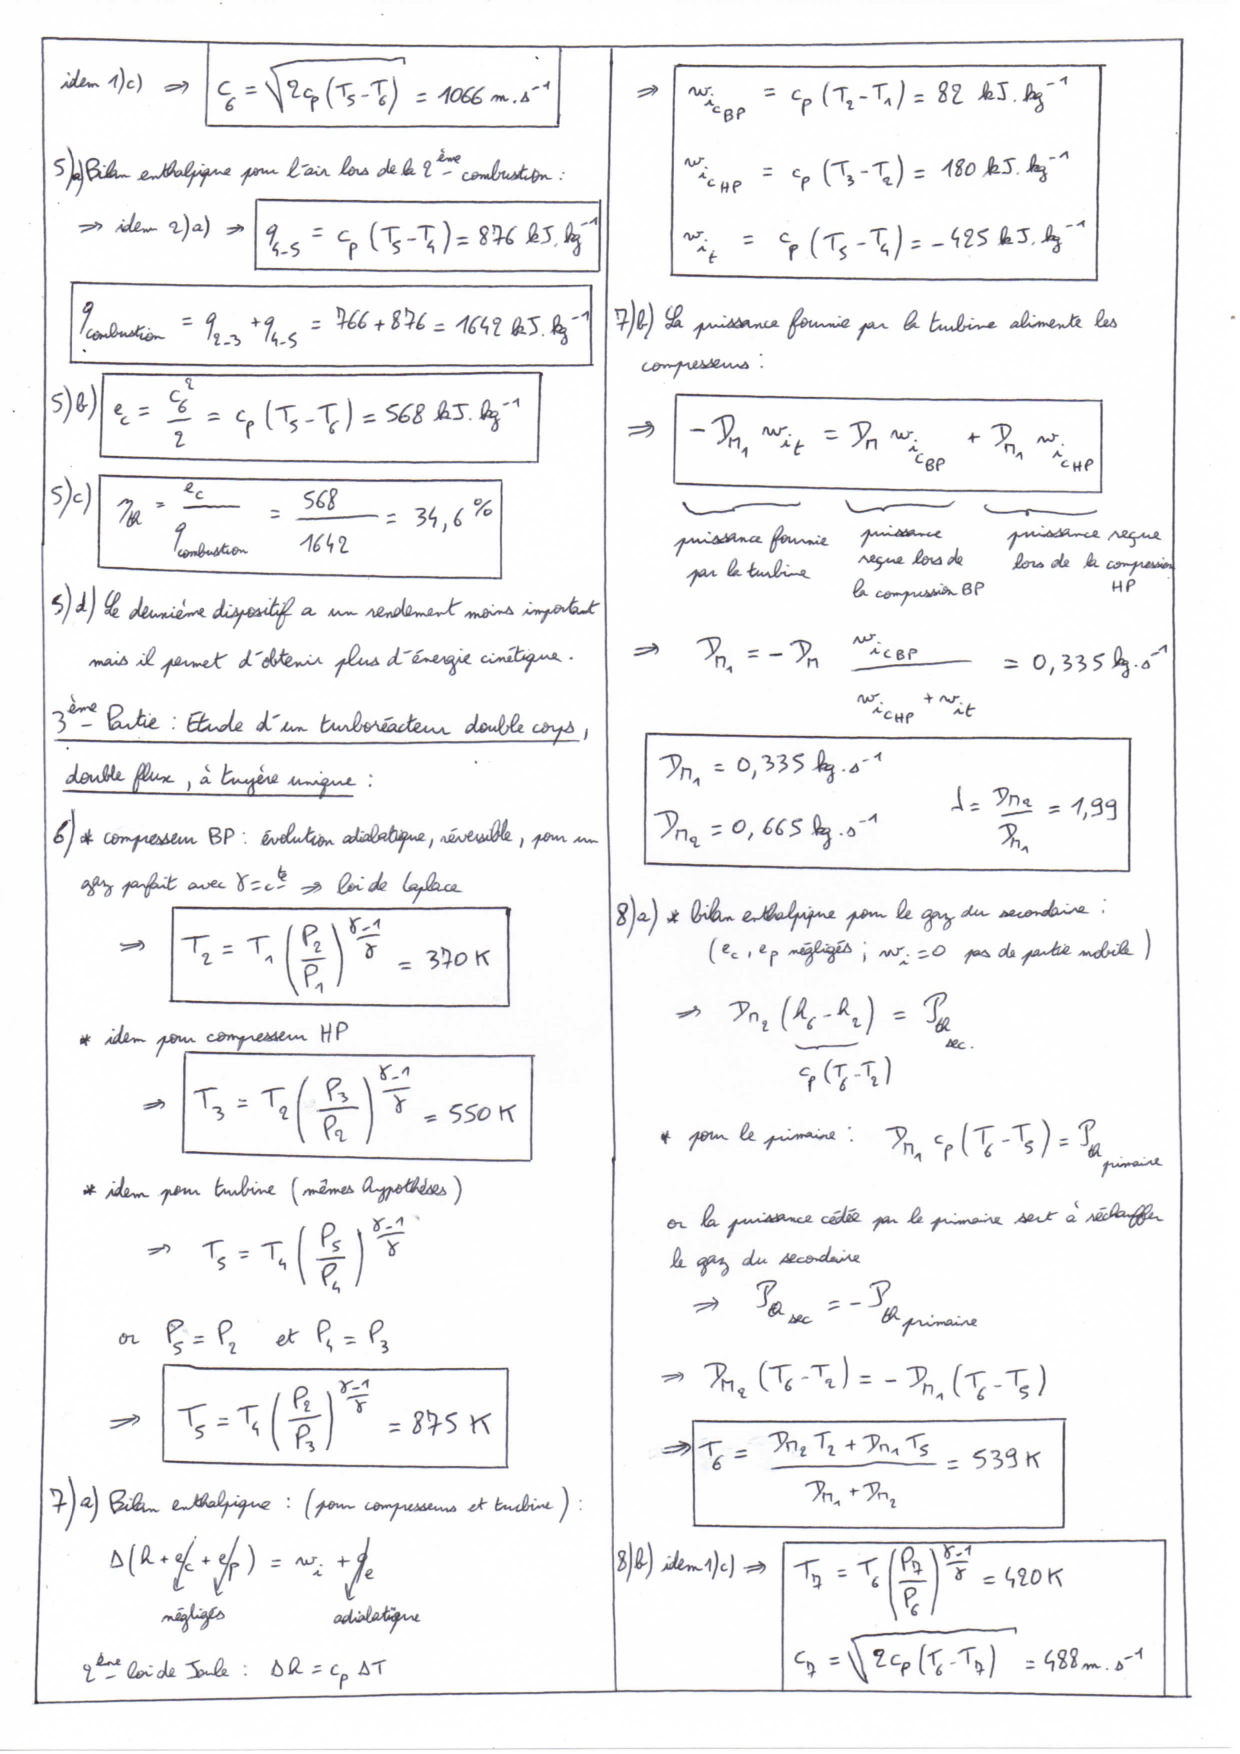 idem 1)c) ⇒ c₆ = √(2cp(T₅-T₆)) = 1066 m.s⁻¹
5)a) Bilan enthalpique pour l'air lors de la 2ème combustion :
⇒ idem 2)a) ⇒ q₄₋₅ = cp (T₅-T₄) = 876 kJ.kg⁻¹
q combustion = q₂₋₃ + q₄₋₅ = 766 + 876 = 1642 kJ.kg⁻¹
5)b) ec = c₆²/2 = cp (T₅-T₆) = 568 kJ.kg⁻¹
5)c) ηth = ec / q combustion = 568/1642 = 34,6 %
5)d) Le deuxième dispositif a un rendement moins important
mais il permet d'obtenir plus d'énergie cinétique.
3ème Partie : Etude d'un turboréacteur double corps,
double flux, à tuyère unique :
6) * compresseur BP : évolution adiabatique, réversible, pour un
gaz parfait avec γ = cte ⇒ loi de Laplace
⇒ T₂ = T₁ (P₂/P₁)^((γ-1)/γ) = 370 K
* idem pour compresseur HP
⇒ T₃ = T₂ (P₃/P₂)^((γ-1)/γ) = 550 K
* idem pour turbine (mêmes hypothèses)
⇒ T₅ = T₄ (P₅/P₄)^((γ-1)/γ)
or P₅ = P₂ et P₄ = P₃
⇒ T₅ = T₄ (P₂/P₃)^((γ-1)/γ) = 875 K
7)a) Bilan enthalpique : (pour compresseurs et turbine) :
Δ(h + ec + ep) = wi + qe
négligés adiabatique
2ème loi de Joule : Δh = cp ΔT
⇒ wi cBP = cp (T₂-T₁) = 82 kJ.kg⁻¹
wi cHP = cp (T₃-T₂) = 180 kJ.kg⁻¹
wi t = cp (T₅-T₄) = -425 kJ.kg⁻¹
7)b) La puissance fournie par la turbine alimente les
compresseurs :
⇒ -Dm₁ wi t = Dm wi cBP + Dm₁ wi cHP
puissance fournie puissance puissance reçue
par la turbine reçue lors de lors de la compression
la compression BP HP
⇒ Dm₁ = -Dm wi cBP / (wi cHP + wi t) = 0,335 kg.s⁻¹
Dm₁ = 0,335 kg.s⁻¹
Dm₂ = 0,665 kg.s⁻¹ λ = Dm₂/Dm₁ = 1,99
8)a) * bilan enthalpique pour le gaz du secondaire :
(ec, ep négligés ; wi = 0 pas de partie mobile)
⇒ Dm₂ (h₆-h₂) = Pth sec.
cp(T₆-T₂)
* pour le primaire : Dm₁ cp (T₆-T₅) = Pth primaire
or la puissance cédée par le primaire sert à réchauffer
le gaz du secondaire
⇒ Pth sec = -Pth primaire
⇒ Dm₂ (T₆-T₂) = -Dm₁ (T₆-T₅)
⇒ T₆ = (Dm₂ T₂ + Dm₁ T₅) / (Dm₁ + Dm₂) = 539 K
8)b) idem 1)c) ⇒ T₇ = T₆ (P₇/P₆)^((γ-1)/γ) = 420 K
c₇ = √(2cp(T₆-T₇)) = 488 m.s⁻¹